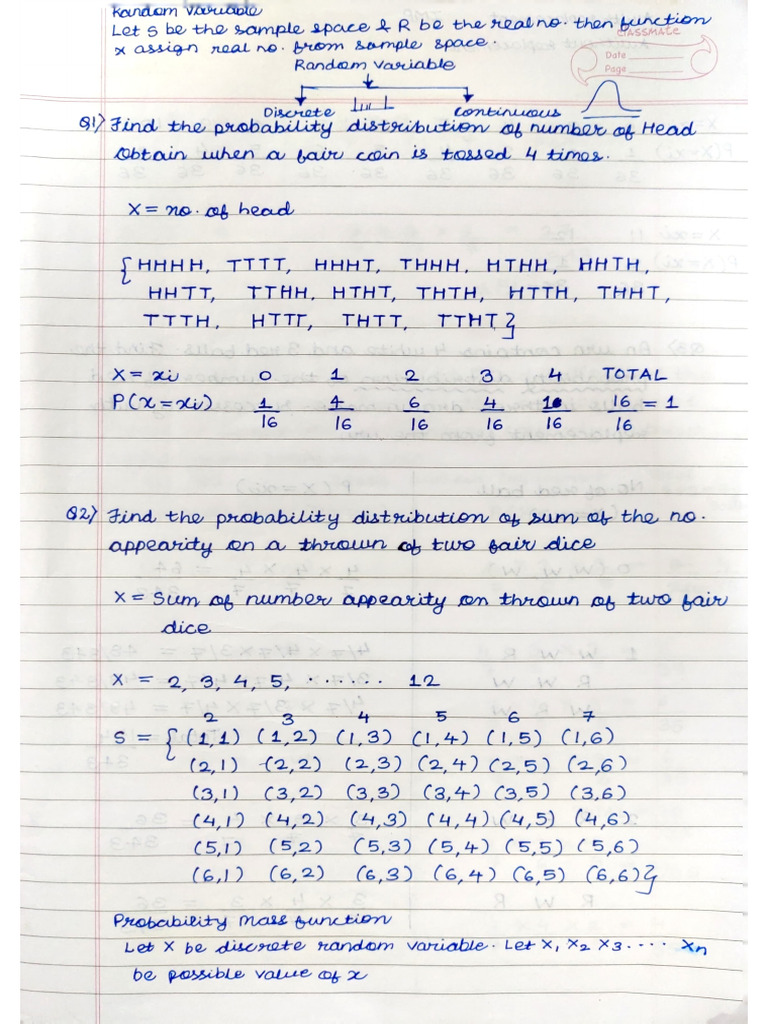 Random Variable
Let S be the sample space & R be the real no. then function
x assign real no. from sample space.
CLASSMATE
Date
Page
Random Variable
Discrete
Continuous
Q1) Find the probability distribution of number of Head
Obtain when a fair coin is tossed 4 times.
X = no. of head
{HHHH, TTTT, HHHT, THHH, HTHH, HHTH,
HHTT, TTHH, HTHT, THTH, HTTH, THHT,
TTTH, HTTT, THTT, TTHT}
X = xi 0 1 2 3 4 TOTAL
P(x=xi) 1/16 4/16 6/16 4/16 1/16 16/16 = 1
Q2) Find the probability distribution of sum of the no.
appearity on a thrown of two fair dice
X = Sum of number appearity on thrown of two fair
dice
X = 2, 3, 4, 5, ....... 12
2 3 4 5 6 7
S = { (1,1) (1,2) (1,3) (1,4) (1,5) (1,6)
(2,1) (2,2) (2,3) (2,4) (2,5) (2,6)
(3,1) (3,2) (3,3) (3,4) (3,5) (3,6)
(4,1) (4,2) (4,3) (4,4) (4,5) (4,6)
(5,1) (5,2) (5,3) (5,4) (5,5) (5,6)
(6,1) (6,2) (6,3) (6,4) (6,5) (6,6)}
Probability Mass function
Let X be discrete random variable. Let X1 X2 X3 .... Xn
be possible value of x